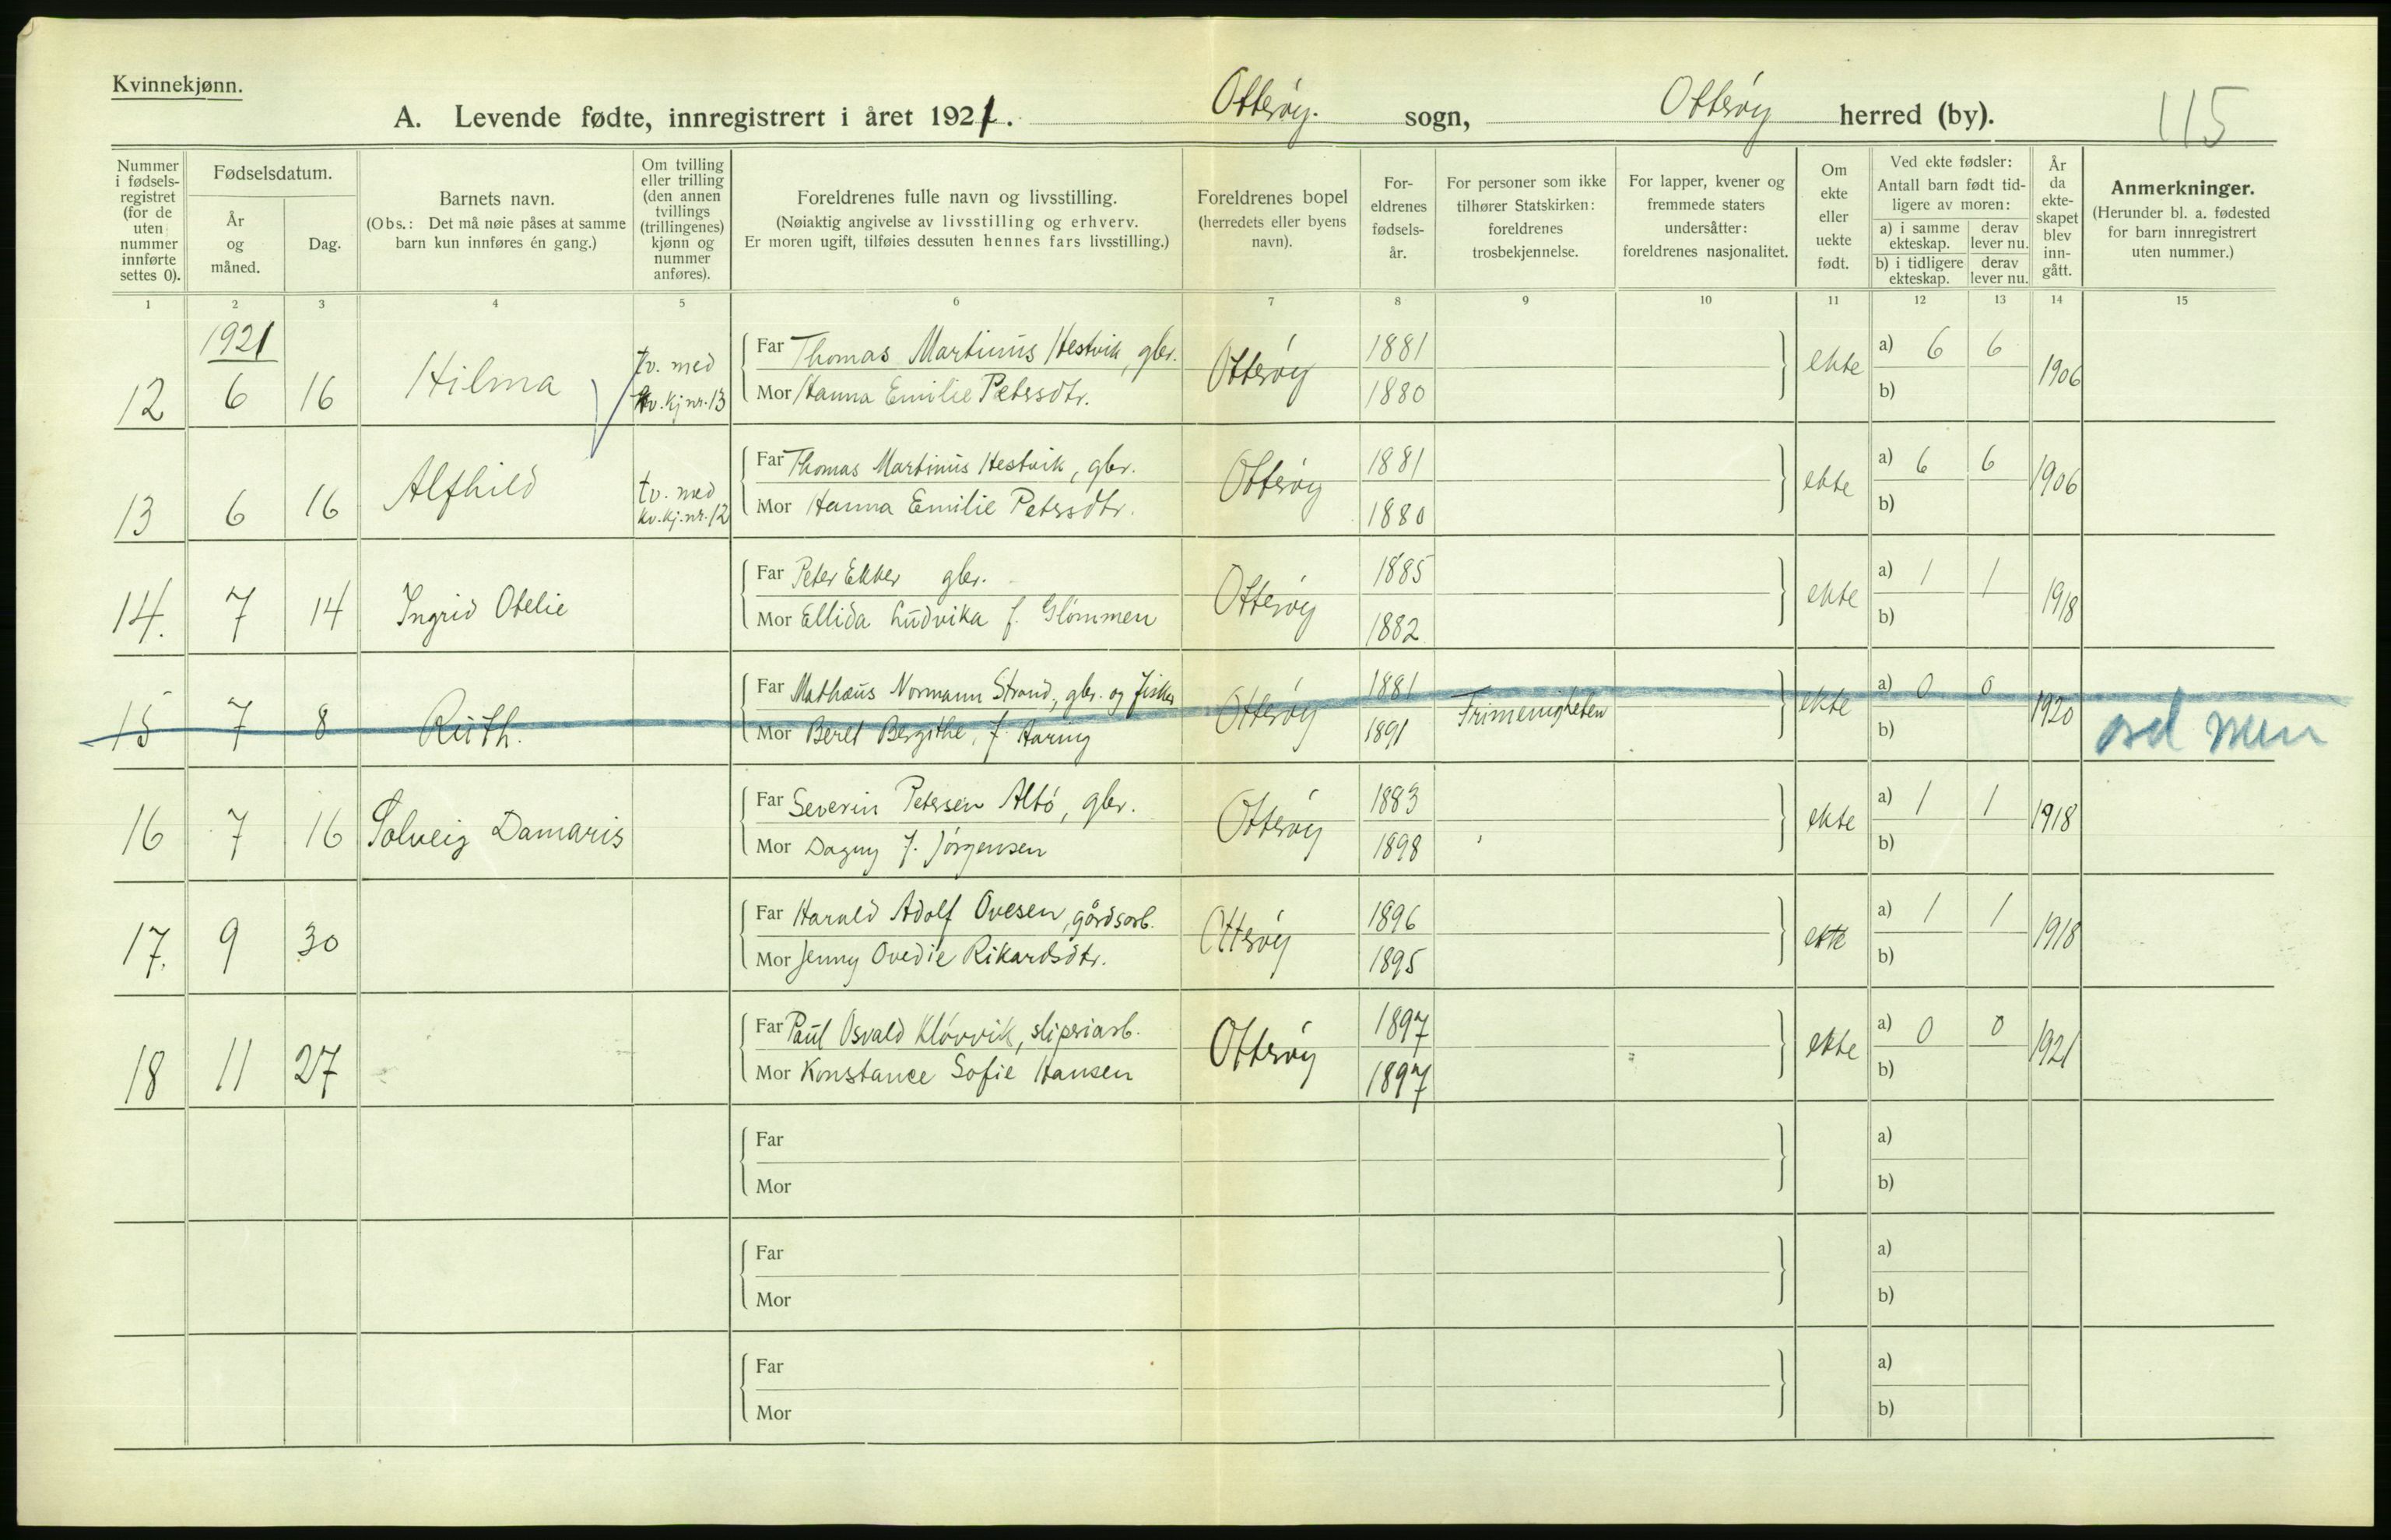 Kvinnekjønn.
A. Levende fødte, innregistrert i året 1921. Otterøy. sogn, Otterøy herred (by). 115
Nummer i fødselsregistret (for de uten nummer innførte settes 0).
Fødselsdatum.
År og måned.
Dag.
Barnets navn.
(Obs.: Det må nøie påses at samme barn kun innføres én gang.)
Om tvilling eller trilling (den annen tvillings (trillingenes) kjønn og nummer anføres).
Foreldrenes fulle navn og livsstilling.
(Nøiaktig angivelse av livsstilling og erhverv.
Er moren ugift, tilføies dessuten hennes fars livsstilling.)
Foreldrenes bopel (herredets eller byens navn).
Foreldrenes fødselsår.
For personer som ikke tilhører Statskirken: foreldrenes trosbekjennelse.
For lapper, kvener og fremmede staters undersåtter: foreldrenes nasjonalitet.
Om ekte eller uekte født.
Ved ekte fødsler:
Antall barn født tidligere av moren:
a) i samme ekteskap. derav lever nu.
b) i tidligere ekteskap. derav lever nu.
År da ekteskapet blev inngått.
Anmerkninger.
(Herunder bl. a. fødested for barn innregistrert uten nummer.)
1 2 3 4 5 6 7 8 9 10 11 12 13 14 15
1921
12 6 16 Hilma tv. med kv. kj nr. 13 Far Thomas Martinus Hestvik, gbr. Otterøy 1881 ekte a) 6 6 1906
Mor Hanna Emilie Petersdtr. 1880 b)
13 6 16 Alfhild tv. med kv. kj. nr. 12 Far Thomas Martinus Hestvik, gbr. Otterøy 1881 ekte a) 6 6 1906
Mor Hanna Emilie Petersdtr. 1880 b)
14. 7 14 Ingrid Otelie Far Peter Ekker gbr. Otterøy 1885 ekte a) 1 1 1918
Mor Ellida Ludvika f. Glömmen 1882 b)
15 7 8 Ruth. Far Mathæus Normann Strand, gbr. og fisker Otterøy 1881 Frimenigheten ekte a) 0 0 1920
Mor Beret Bergithe, f. Haring 1891 b)
16 7 16 Solveig Damaris Far Severin Petersen Altö, gbr. Otterøy 1883 ekte a) 1 1 1918
Mor Dagny f. Jörgensen 1898 b)
17. 9 30 Far Harald Adolf Ovesen, gårdsarb. Otterøy 1896 ekte a) 1 1 1918
Mor Jenny Ovedie Rikardsdtr. 1895 b)
18 11 27 Far Paul Osvald Klövvik, sliperiarb. Otterøy 1897 ekte a) 0 0 1921
Mor Konstance Sofie Hansen 1897 b)
Far a)
Mor b)
Far a)
Mor b)
Far a)
Mor b)